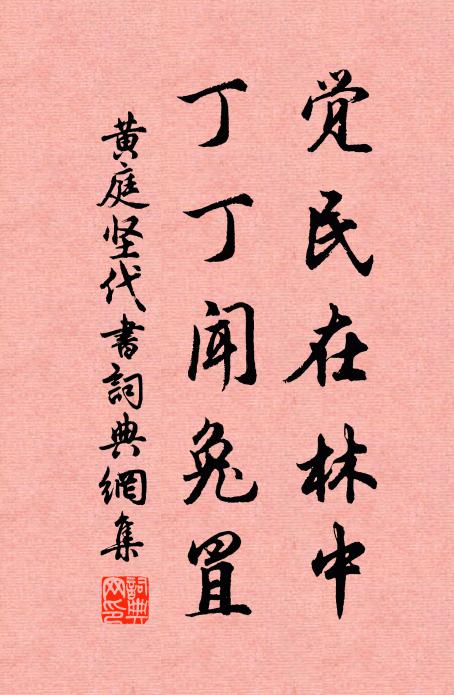 觉民在林中
丁丁闻兔罝
黄庭坚代書詞典網集
詞典网印